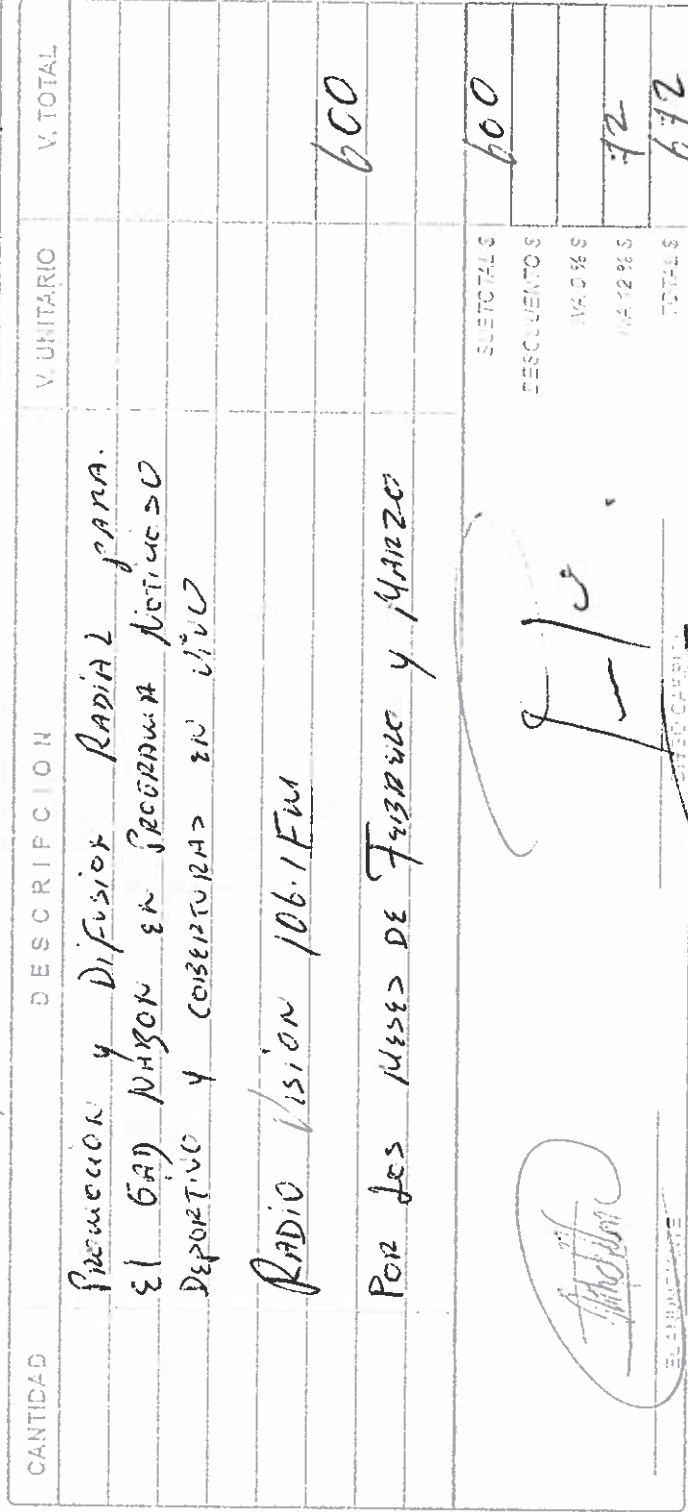 CANTIDAD DESCRIPCION V. UNITARIO V. TOTAL
Promocion y Difusion Radial para.
El GAD Nabon en Programa Noticioso
Deportivo y Coberturas en Vivo 600
Radio Vision 106.1 Fm
Por Los Meses de Febrero y Marzo
SUBTOTAL $ 600
DESCUENTO $
IVA 0 % $
IVA 12 % $ 72
TOTAL $ 672
EL ANUNCIANTE